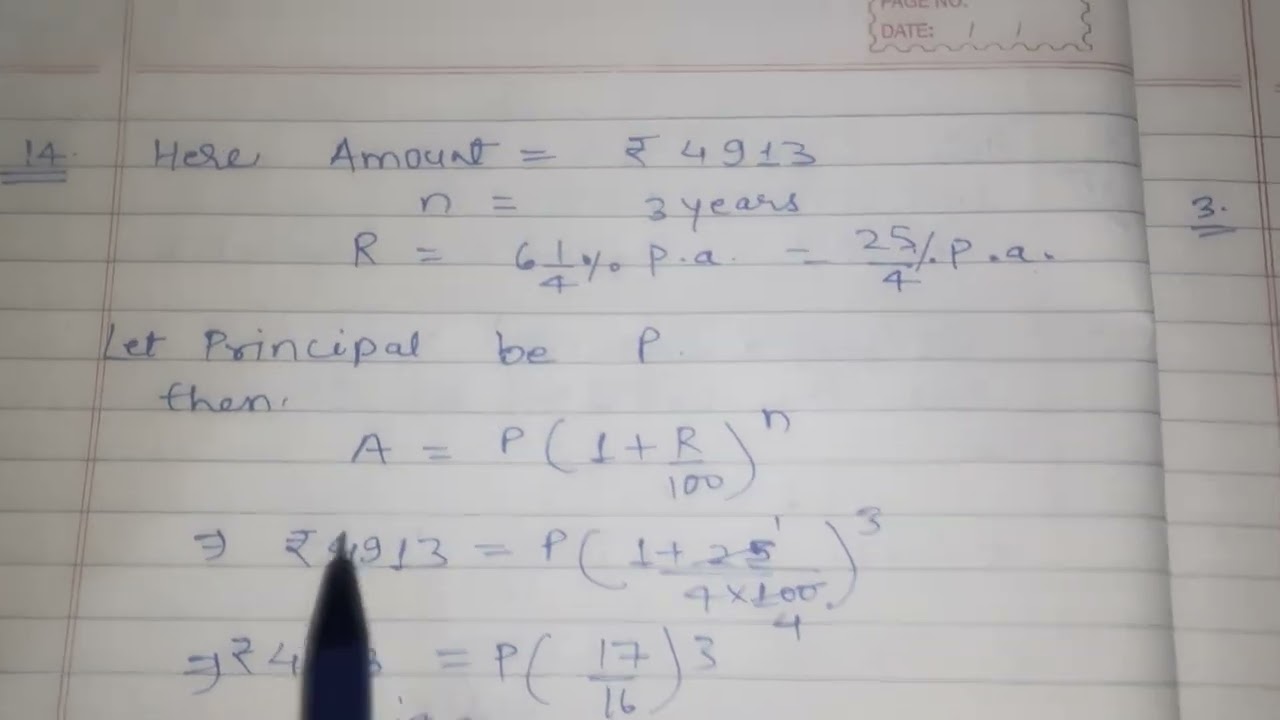 PAGE NO.
DATE: / /
14. Here Amount = ₹ 4913
n = 3 years
3.
R = 6 1/4 % p.a. = 25/4 % p.a.
Let Principal be P.
then.
A = P(1 + R/100)^n
⇒ ₹ 4913 = P(1 + 25/(4×100))^3
1
4
⇒ ₹ 4 3 = P(17/16)^3